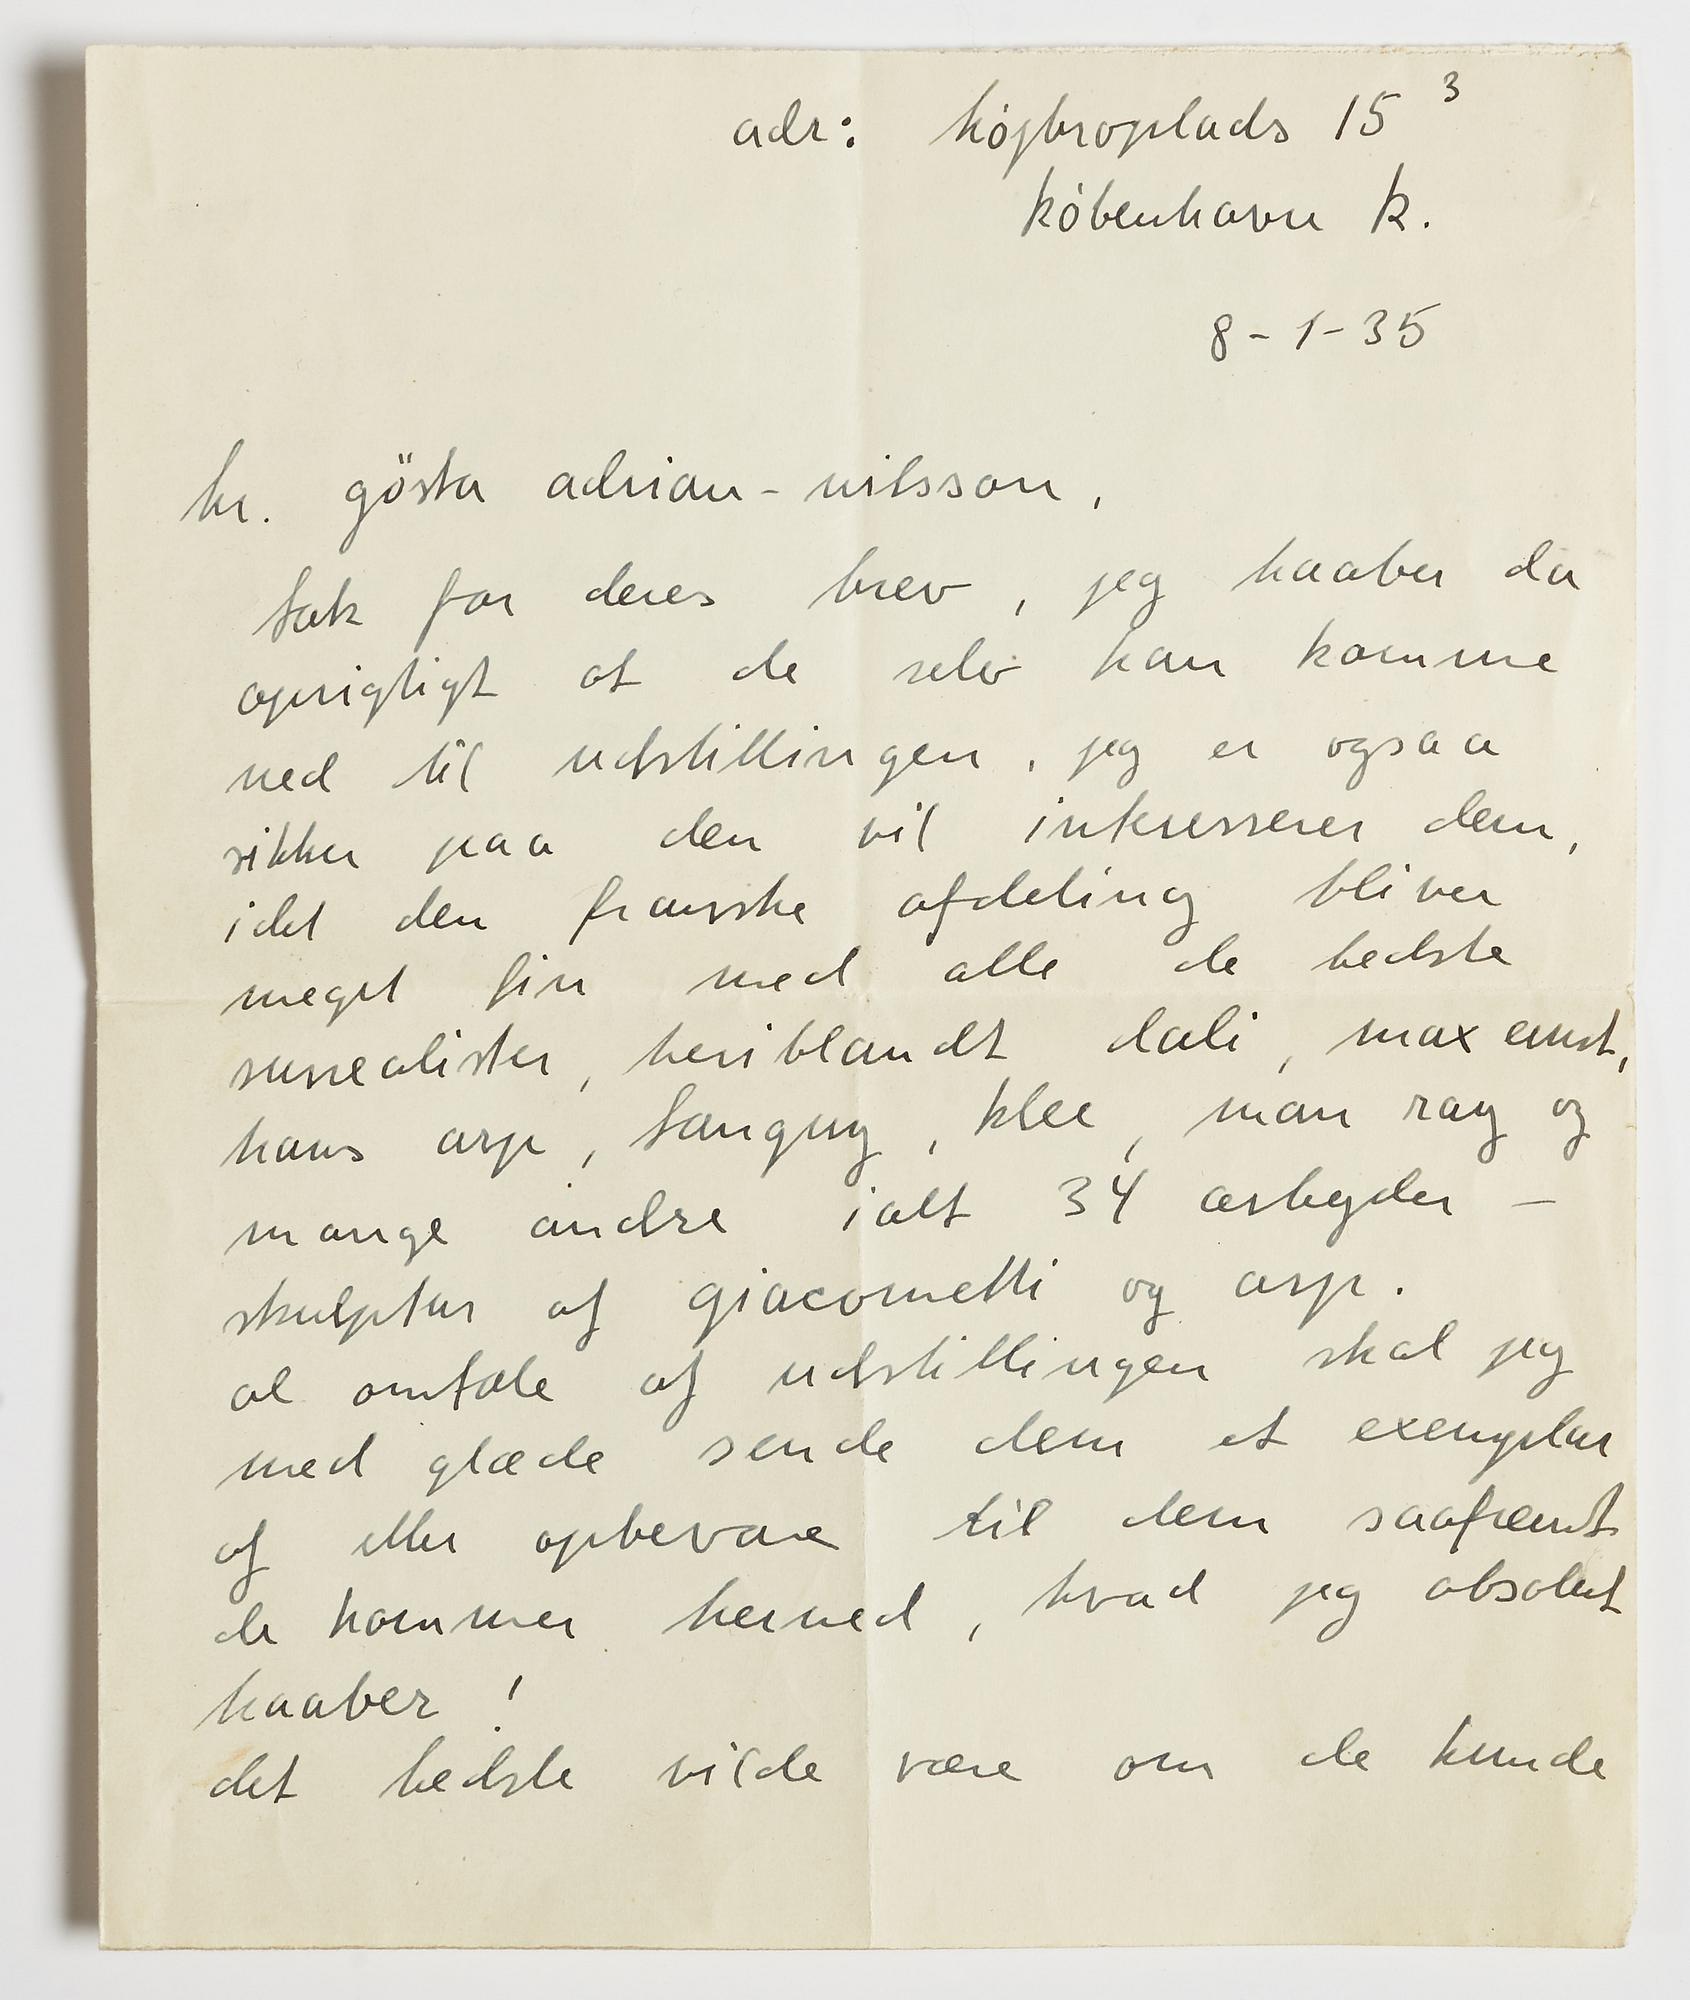 adr: højbroplads 15 3
københavn k.
8-1-35
hr. gösta adrian-nilsson,
tak for deres brev, jeg haaber da
oprigtigt at de selv kan komme
ned til udstillingen, jeg er ogsaa
sikker paa den vil interesserer dem,
idet den franske afdeling bliver
meget fin med alle de bedste
surrealister, heriblandt dali, max ernst,
hans arp, tanguy, klee, man ray og
mange andre ialt 34 arbejder –
skulptur af giacometti og arp.
al omtale af udstillingen skal jeg
med glæde sende dem et exemplar
af eller opbevare til dem saafremt
de kommer herned, hvad jeg absolut
haaber !
det bedste vilde være om de kunde